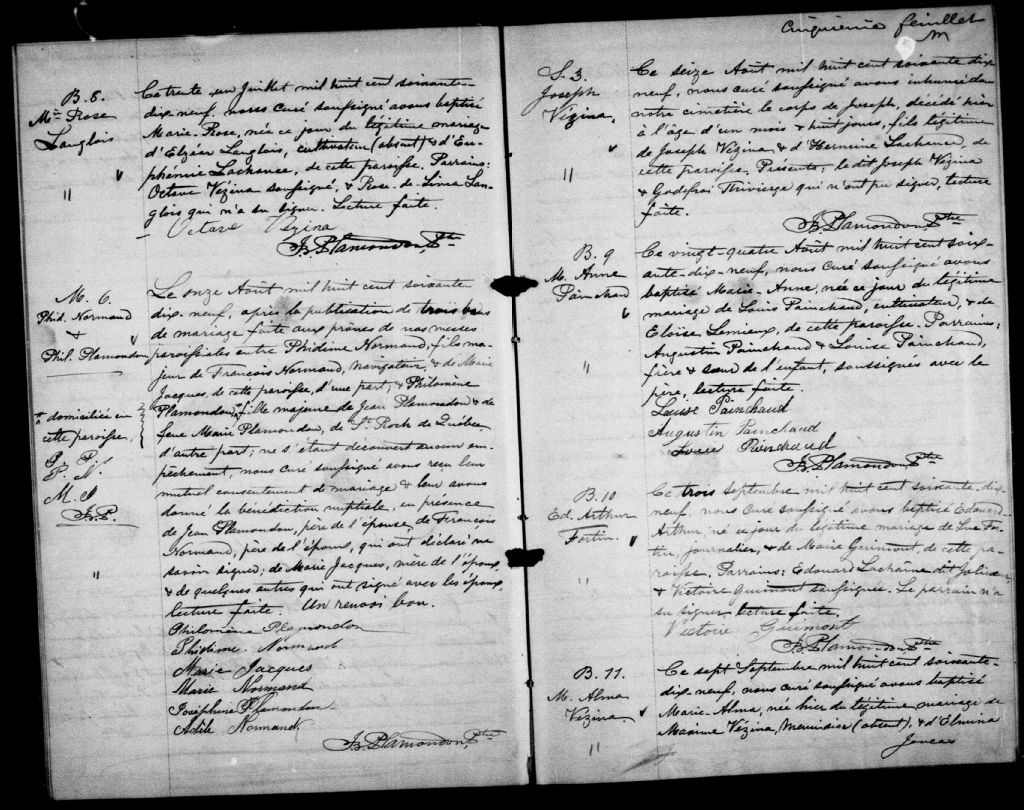 B. 8.
Mie Rose
Langlois
"
Ce trente-un Juillet mil huit cent soixante-
dix-neuf, nous curé soussigné avons baptisé
Marie-Rose, née ce jour du légitime mariage
d'Elzéar Langlois, cultivateur (absent) & d'Eu-
phémie Lachance, de cette paroisse. Parrains:
Octave Vézina soussigné, & Rose-de-Lima Lan-
glois qui n'a su signer. Lecture faite.
Octave Vezina
J.B. Plamondon, Ptre
M. 6.
Phid. Normand
&
Phil. Plamondon
* domiciliée en
cette paroisse,
P. P.
P. N.
M. J.
J.B.P.
"
Le onze Août mil huit cent soixante-
dix-neuf, après la publication de trois bans
de mariage faite aux prônes de nos messes
paroissiales entre Phidime Normand, fils ma-
jeur de François Normand, navigateur, & de Marie
Jacques, de cette paroisse, d'une part; & Philomène
Plamondon,* fille majeure de Jean Plamondon & de
feue Marie Plamondon, de St Roch de Québec,
d'autre part; ne s'étant découvert aucun em-
pêchement, nous curé soussigné avons reçu leur
mutuel consentement de mariage & leur avons
donné la bénédiction nuptiale, en présence
de Jean Plamondon, père de l'épouse, de François
Normand, père de l'époux, qui ont déclaré ne
savoir signer; de Marie Jacques, mère de l'époux,
& de quelques autres qui ont signé avec les époux,
lecture faite. Un renvoi bon.
Philomène Plamondon
Phidime Normand
Marie Jacques
Marie Normand
Joséphine Plamondon
Adèle Normand
J.B. Plamondon, Ptre
Cinquième feuillet
S. 3.
Joseph
Vézina,
"
Ce seize Août mil huit cent soixante dix
neuf, nous curé soussigné avons inhumé dans
notre cimetière le corps de Joseph, décédé hier
à l'âge d'un mois & huit jours, fils légitime
de Joseph Vézina & d'Hermine Lachance, de
cette paroisse. Présents: le dit Joseph Vézina
& Godefroi Thivierge qui n'ont pu signer, lecture
faite.
J.B. Plamondon Ptre
B. 9
M. Anne
Painchaud
"
Ce vingt-quatre Août mil huit cent soix-
ante-dix-neuf, nous curé soussigné avons
baptisé Marie-Anne, née ce jour du légitime
mariage de Louis Painchaud, cultivateur, & de
Eloïse Lemieux, de cette paroisse. Parrains:
Augustin Painchaud & Louise Painchaud,
frère & sœur de l'enfant, soussignés avec le
père, lecture faite.
Louise Painchaud
Augustin Painchaud
Louis Painchaud
J.B. Plamondon, Ptre
B. 10
Ed. Arthur
Fortin
"
Ce trois Septembre mil huit cent soixante-dix-
neuf, nous curé soussigné avons baptisé Edouard-
Arthur, né ce jour du légitime mariage de Luc For-
tin, journalier, & de Marie Guimont, de cette pa-
roisse. Parrains: Edouard Lachaine dit Jolicoeur
& Victoire Guimont soussignée. Le parrain n'a
su signer, lecture faite.
Victoire Guimont
J.B. Plamondon Ptre
B. 11.
M. Alma
Vézina
"
Ce sept Septembre mil huit cent soixante-
dix-neuf, nous curé soussigné avons baptisé
Marie-Alma, née hier du légitime mariage de
Maxime Vézina, menuisier (absent), & d'Elmina